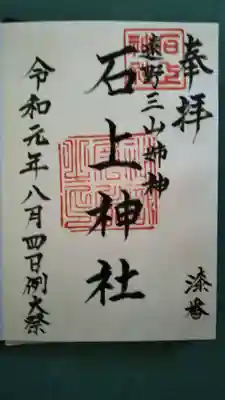 奉拝
遠野三山姉神
石上神社
令和元年八月四日例大祭